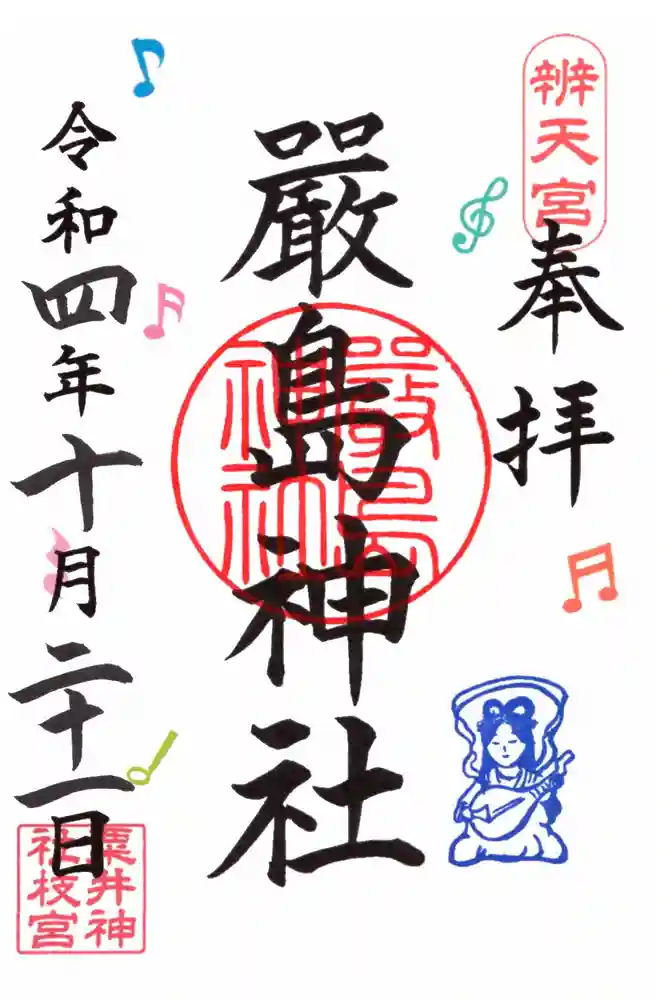 辨天宮
奉拝
嚴島神社
嚴島
神社
令和四年十月二十一日
粟井神
社枝宮